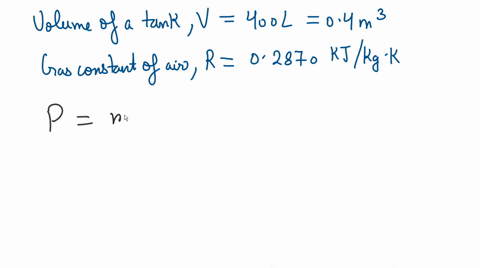 Volume of a tank, V = 400L = 0.4 m³
Gas constant of air, R = 0.2870 KJ/Kg·K
P =